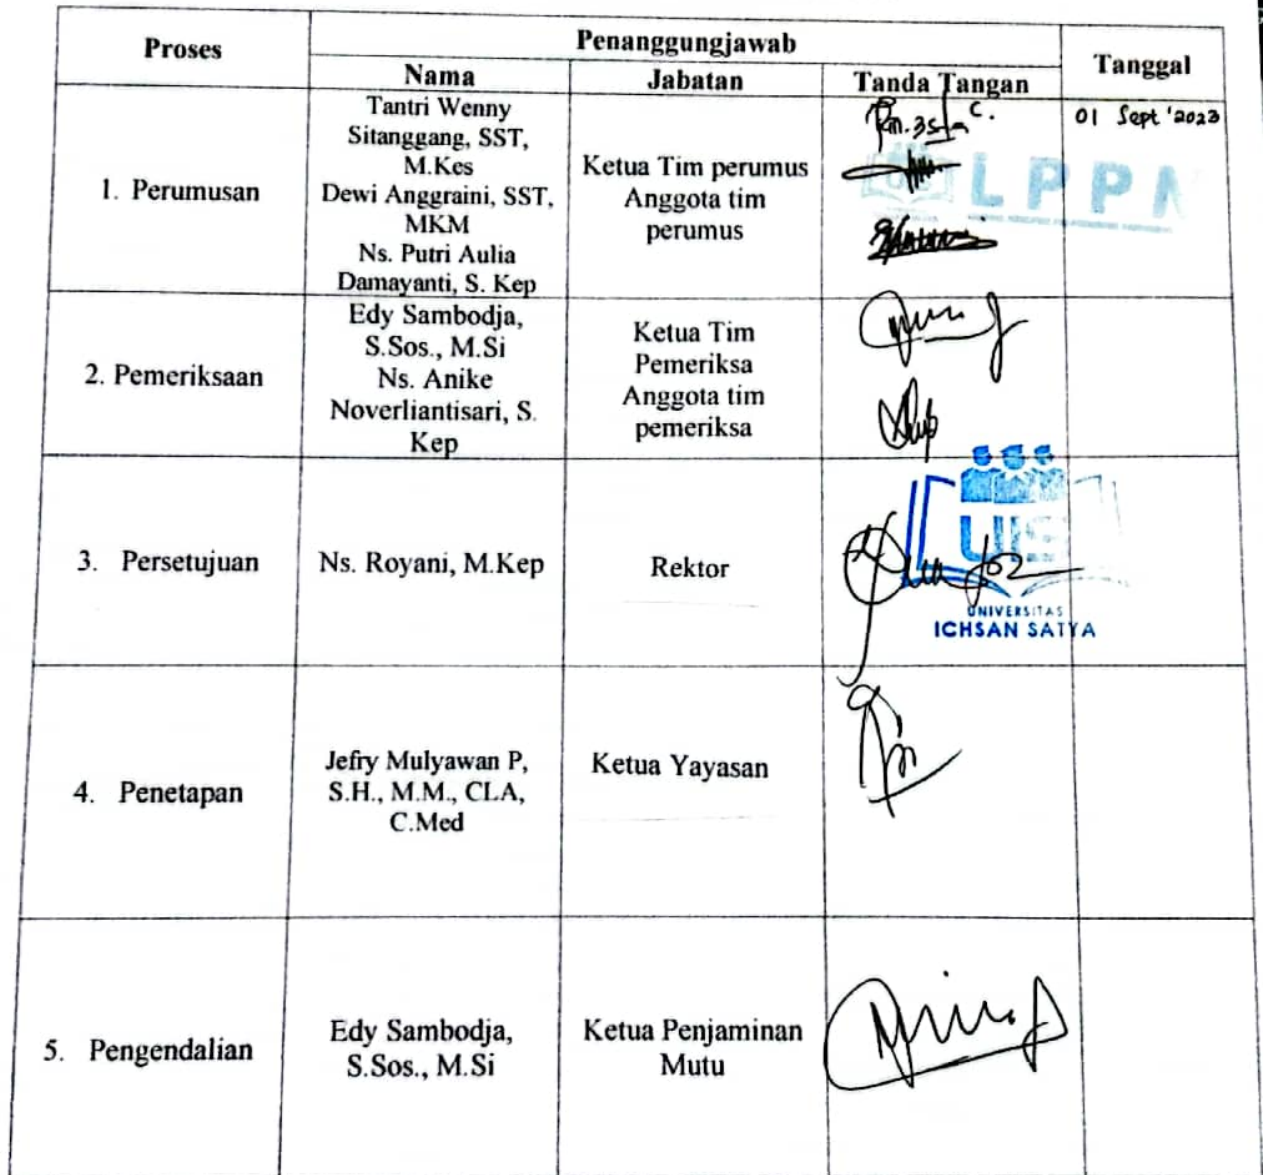 Proses
Penanggungjawab
Tanggal
Nama
Jabatan
Tanda Tangan
1. Perumusan
Tantri Wenny
Sitanggang, SST,
M.Kes
Dewi Anggraini, SST,
MKM
Ns. Putri Aulia
Damayanti, S. Kep
Ketua Tim perumus
Anggota tim
perumus
01 Sept '2023
LPPM
2. Pemeriksaan
Edy Sambodja,
S.Sos., M.Si
Ns. Anike
Noverliantisari, S.
Kep
Ketua Tim
Pemeriksa
Anggota tim
pemeriksa
3. Persetujuan
Ns. Royani, M.Kep
Rektor
UIS
UNIVERSITAS
ICHSAN SATYA
4. Penetapan
Jefry Mulyawan P,
S.H., M.M., CLA,
C.Med
Ketua Yayasan
5. Pengendalian
Edy Sambodja,
S.Sos., M.Si
Ketua Penjaminan
Mutu